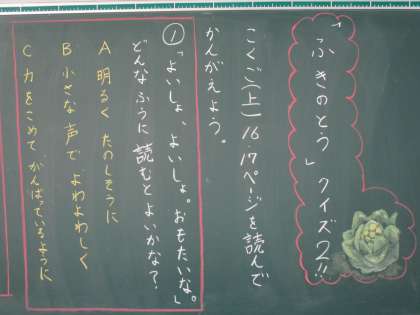 「ふきのとう」クイズ2!!
こくご(上)16.17ページを読んで
かんがえよう。
①「よいしょ、よいしょ。おもたいな。」
どんなふうに読むとよいかな?
A 明るく たのしそうに
B 小さな声で よわよわしく
C 力をこめて、がんばっているように